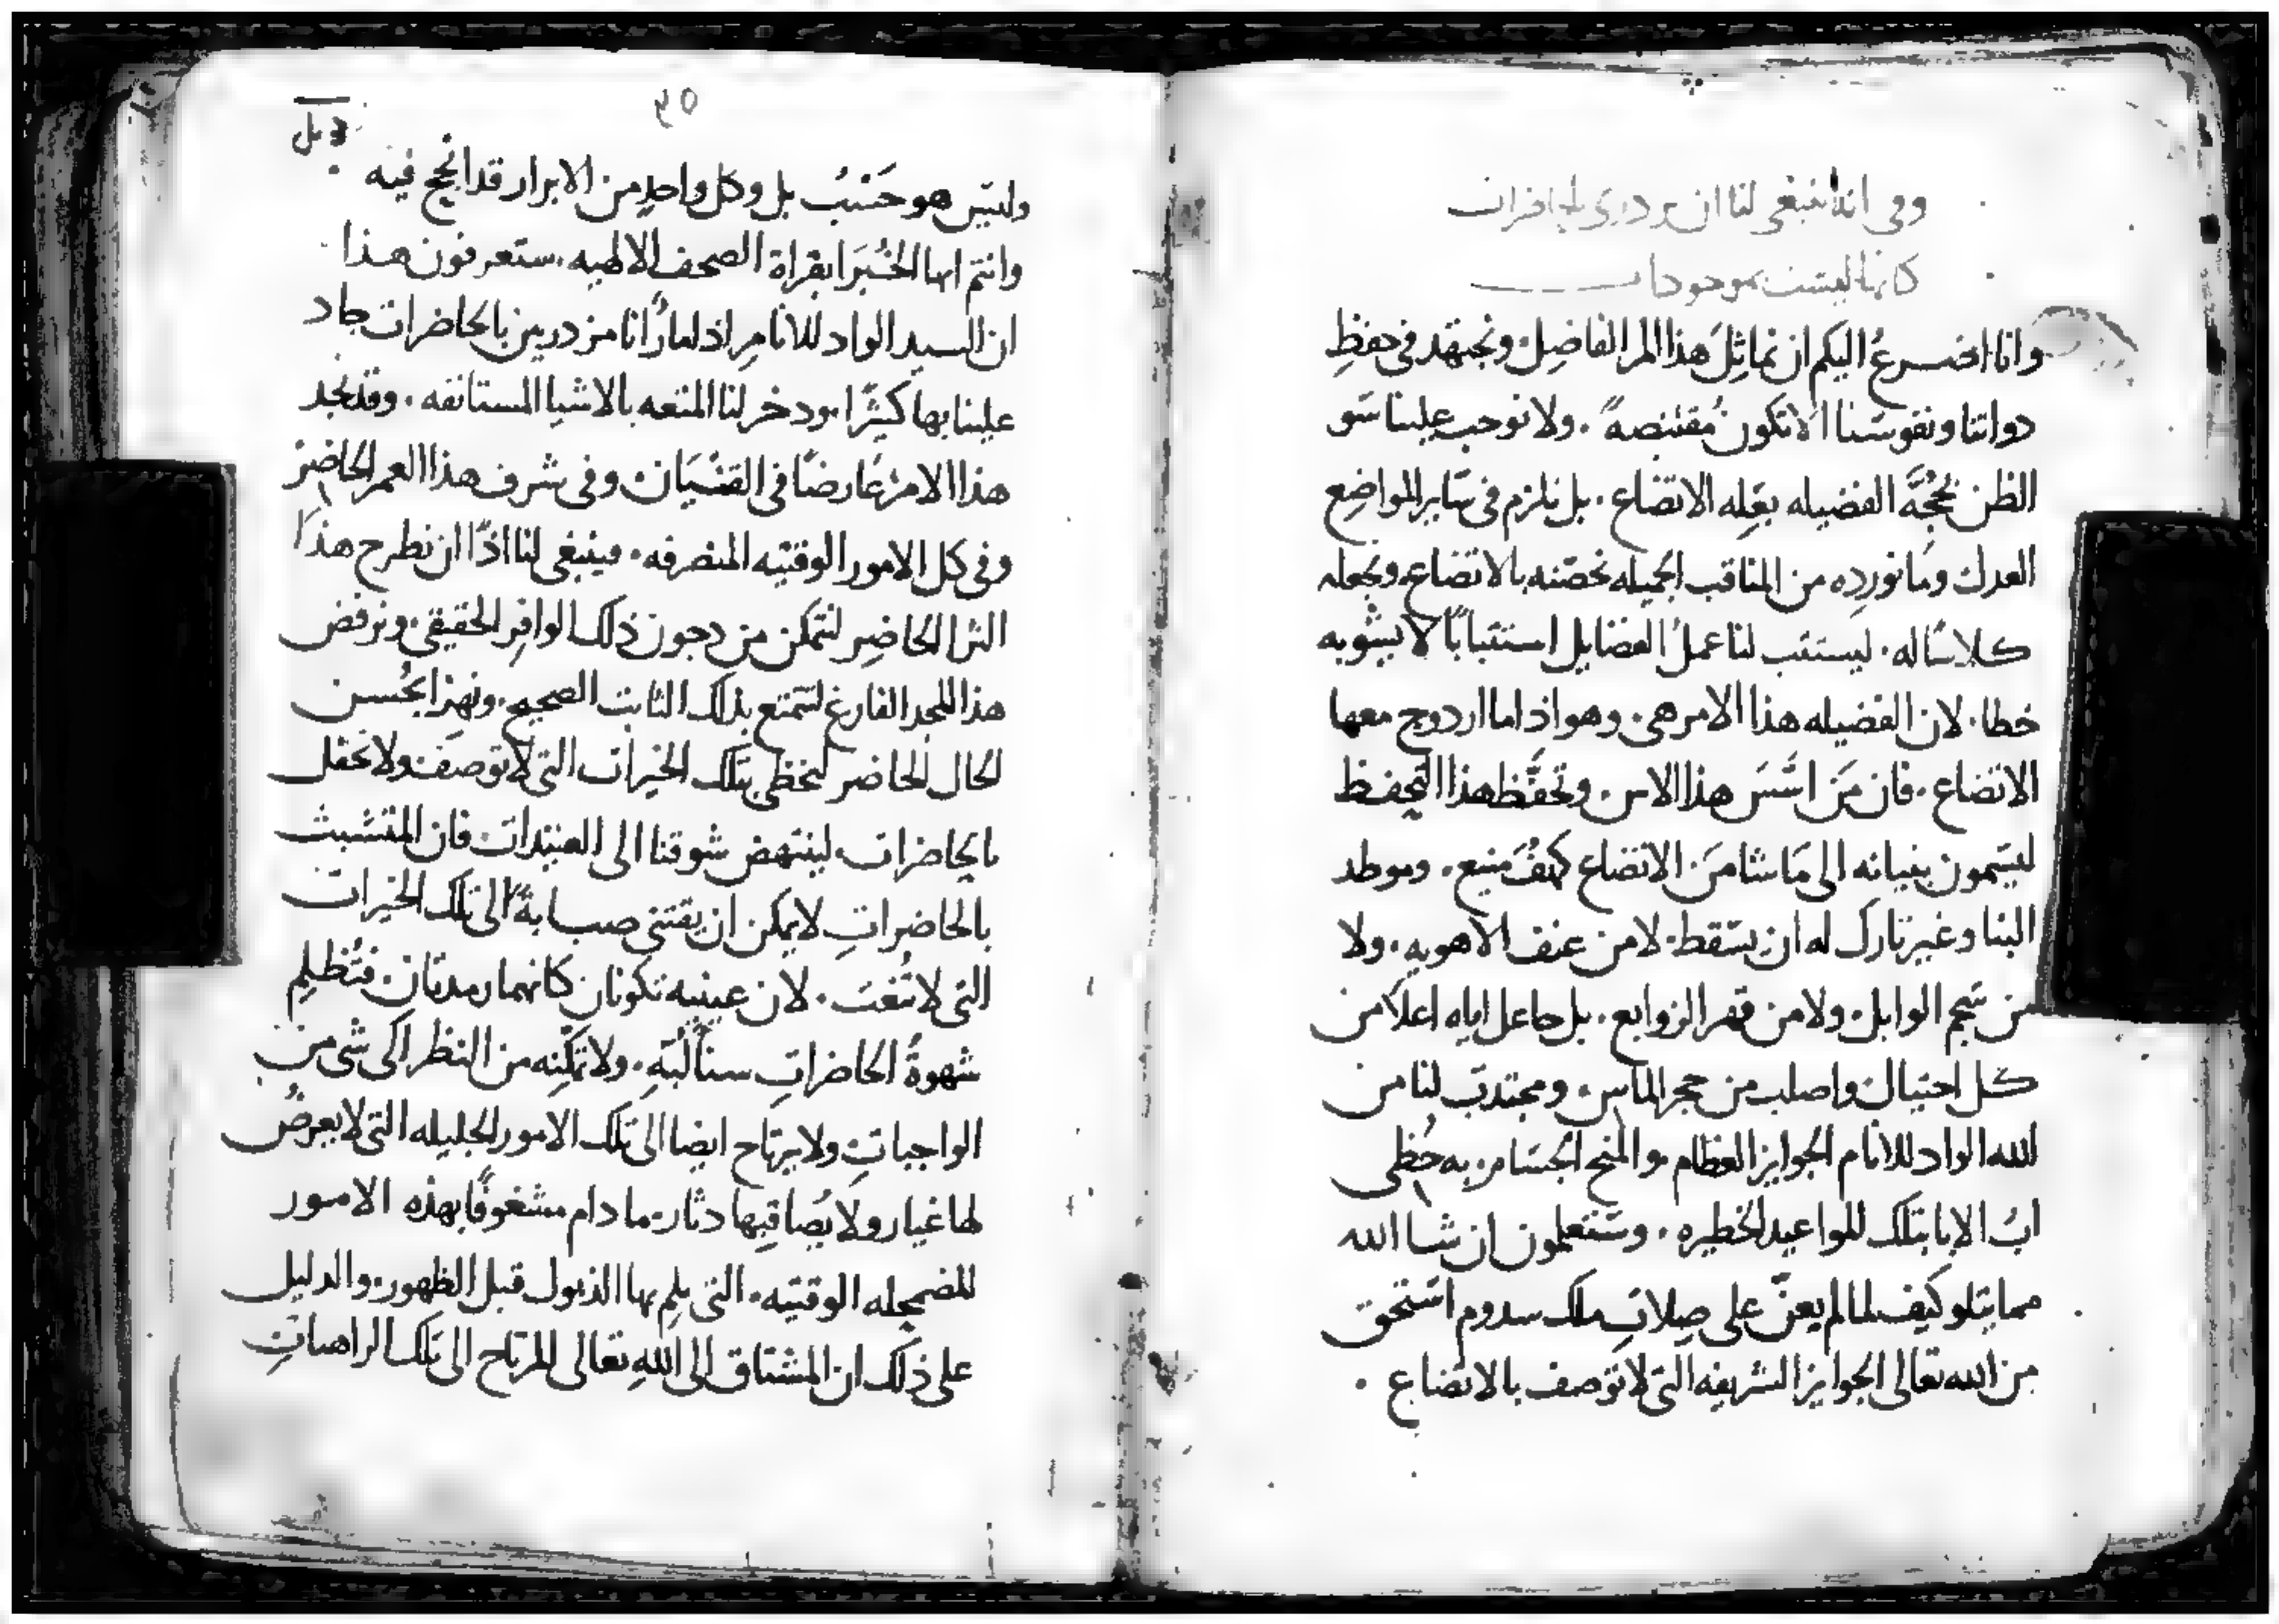 وفي انه ينبغي لنا ان نزدري بالحاضرات
كانها ليست موجودات
وانا اضرع اليكم ان نماثل هذا المر الفاضل ونجتهد في حفظ
دواتنا ونفوسنا الا تكون مقتنصه. ولا نوجب علينا سو
الظن بحجة الفضيله بعله الاتضاع. بل نلزم في ساير المواضع
العدل وما نورده من المناقب الجميله نحصنه بالاتضاع ونجعله
كلاساله. ليستتب لنا عمل الفضايل استتبابًا لا يشوبه
خطا. لان الفضيله هذا الامر هي. وهو اذا ما ازدوج معها
الاتضاع. فان من اسس هذا الاس. وتحفظ هذا التحفظ
ليسمون بنيانه الى ما شا من الاتضاع كهف منيع. وموطد
البنا وغير تارك له ان يسقط. لا من عنف الاهويه. ولا
من سجم الوابل. ولا من قهر الزوابع. بل جاعل اياه اعلا من
كل احتيال واصلب من حجر الماس. ومجتدب لنا من
الله الواد للانام الجوايز العظام والمنح الجسام. به حظي
اب الابا بتلك المواعيد الخطيره. وستعلمون ان شا الله
مما يتلو كيف لما لم يعن على صلات ملك سدوم استحق
من الله تعالى الجوايز الشريفه التي لا توصف بالاتضاع.
٤٥
وليس هو حسب بل وكل واحد من الابرار قد انجح فيه
وانتم ايها الخبرا بقراة الصحف الالهيه. ستعرفون هذا
ان السيد الواد للانام اذا ما رانا مزدرين بالحاضرات جاد
علينا بها كثيرًا. ودخر لنا المتعه بالاشيا المستانفه. وقد نجد
هذا الامر عارضًا في القنيان وفي شرف هذا العمر الحاضر
وفي كل الامور الوقتيه المنصرفه. فينبغي لنا اذًا ان نطرح هذا
الثرا الحاضر لنتمكن من دجون ذلك الوافر الحقيقي. ونرفض
هذا المجد الفارغ لنتمتع بذلك الثابت الصحيح. ونهزا بحسن
الحال الحاضر لنحظي بتلك الخيرات التي لا توصف ولا نحفل
بالحاضرات. لينتهض شوقنا الى العتيدات. فان المتشبث
بالحاضرات لا يمكن ان يقتني صبابة الى تلك الخيرات
التي لا تنعت. لان عينيه تكونان كانهما رمدتان فتظلم
شهوة الحاضرات سنا لبه. ولا تمكنه من النظر الى شي من
الواجبات ولا يرتاح ايضا الى تلك الامور الجليله التي لا يعرض
لها غيار ولا يصاقبها دثار. ما دام مشغوفًا بهذه الامور
المضمحله الوقتيه. التي يلم بها الذبول قبل الظهور. والدليل
على ذلك ان المشتاق الى الله تعالى المرتاح الى تلك الراهنات